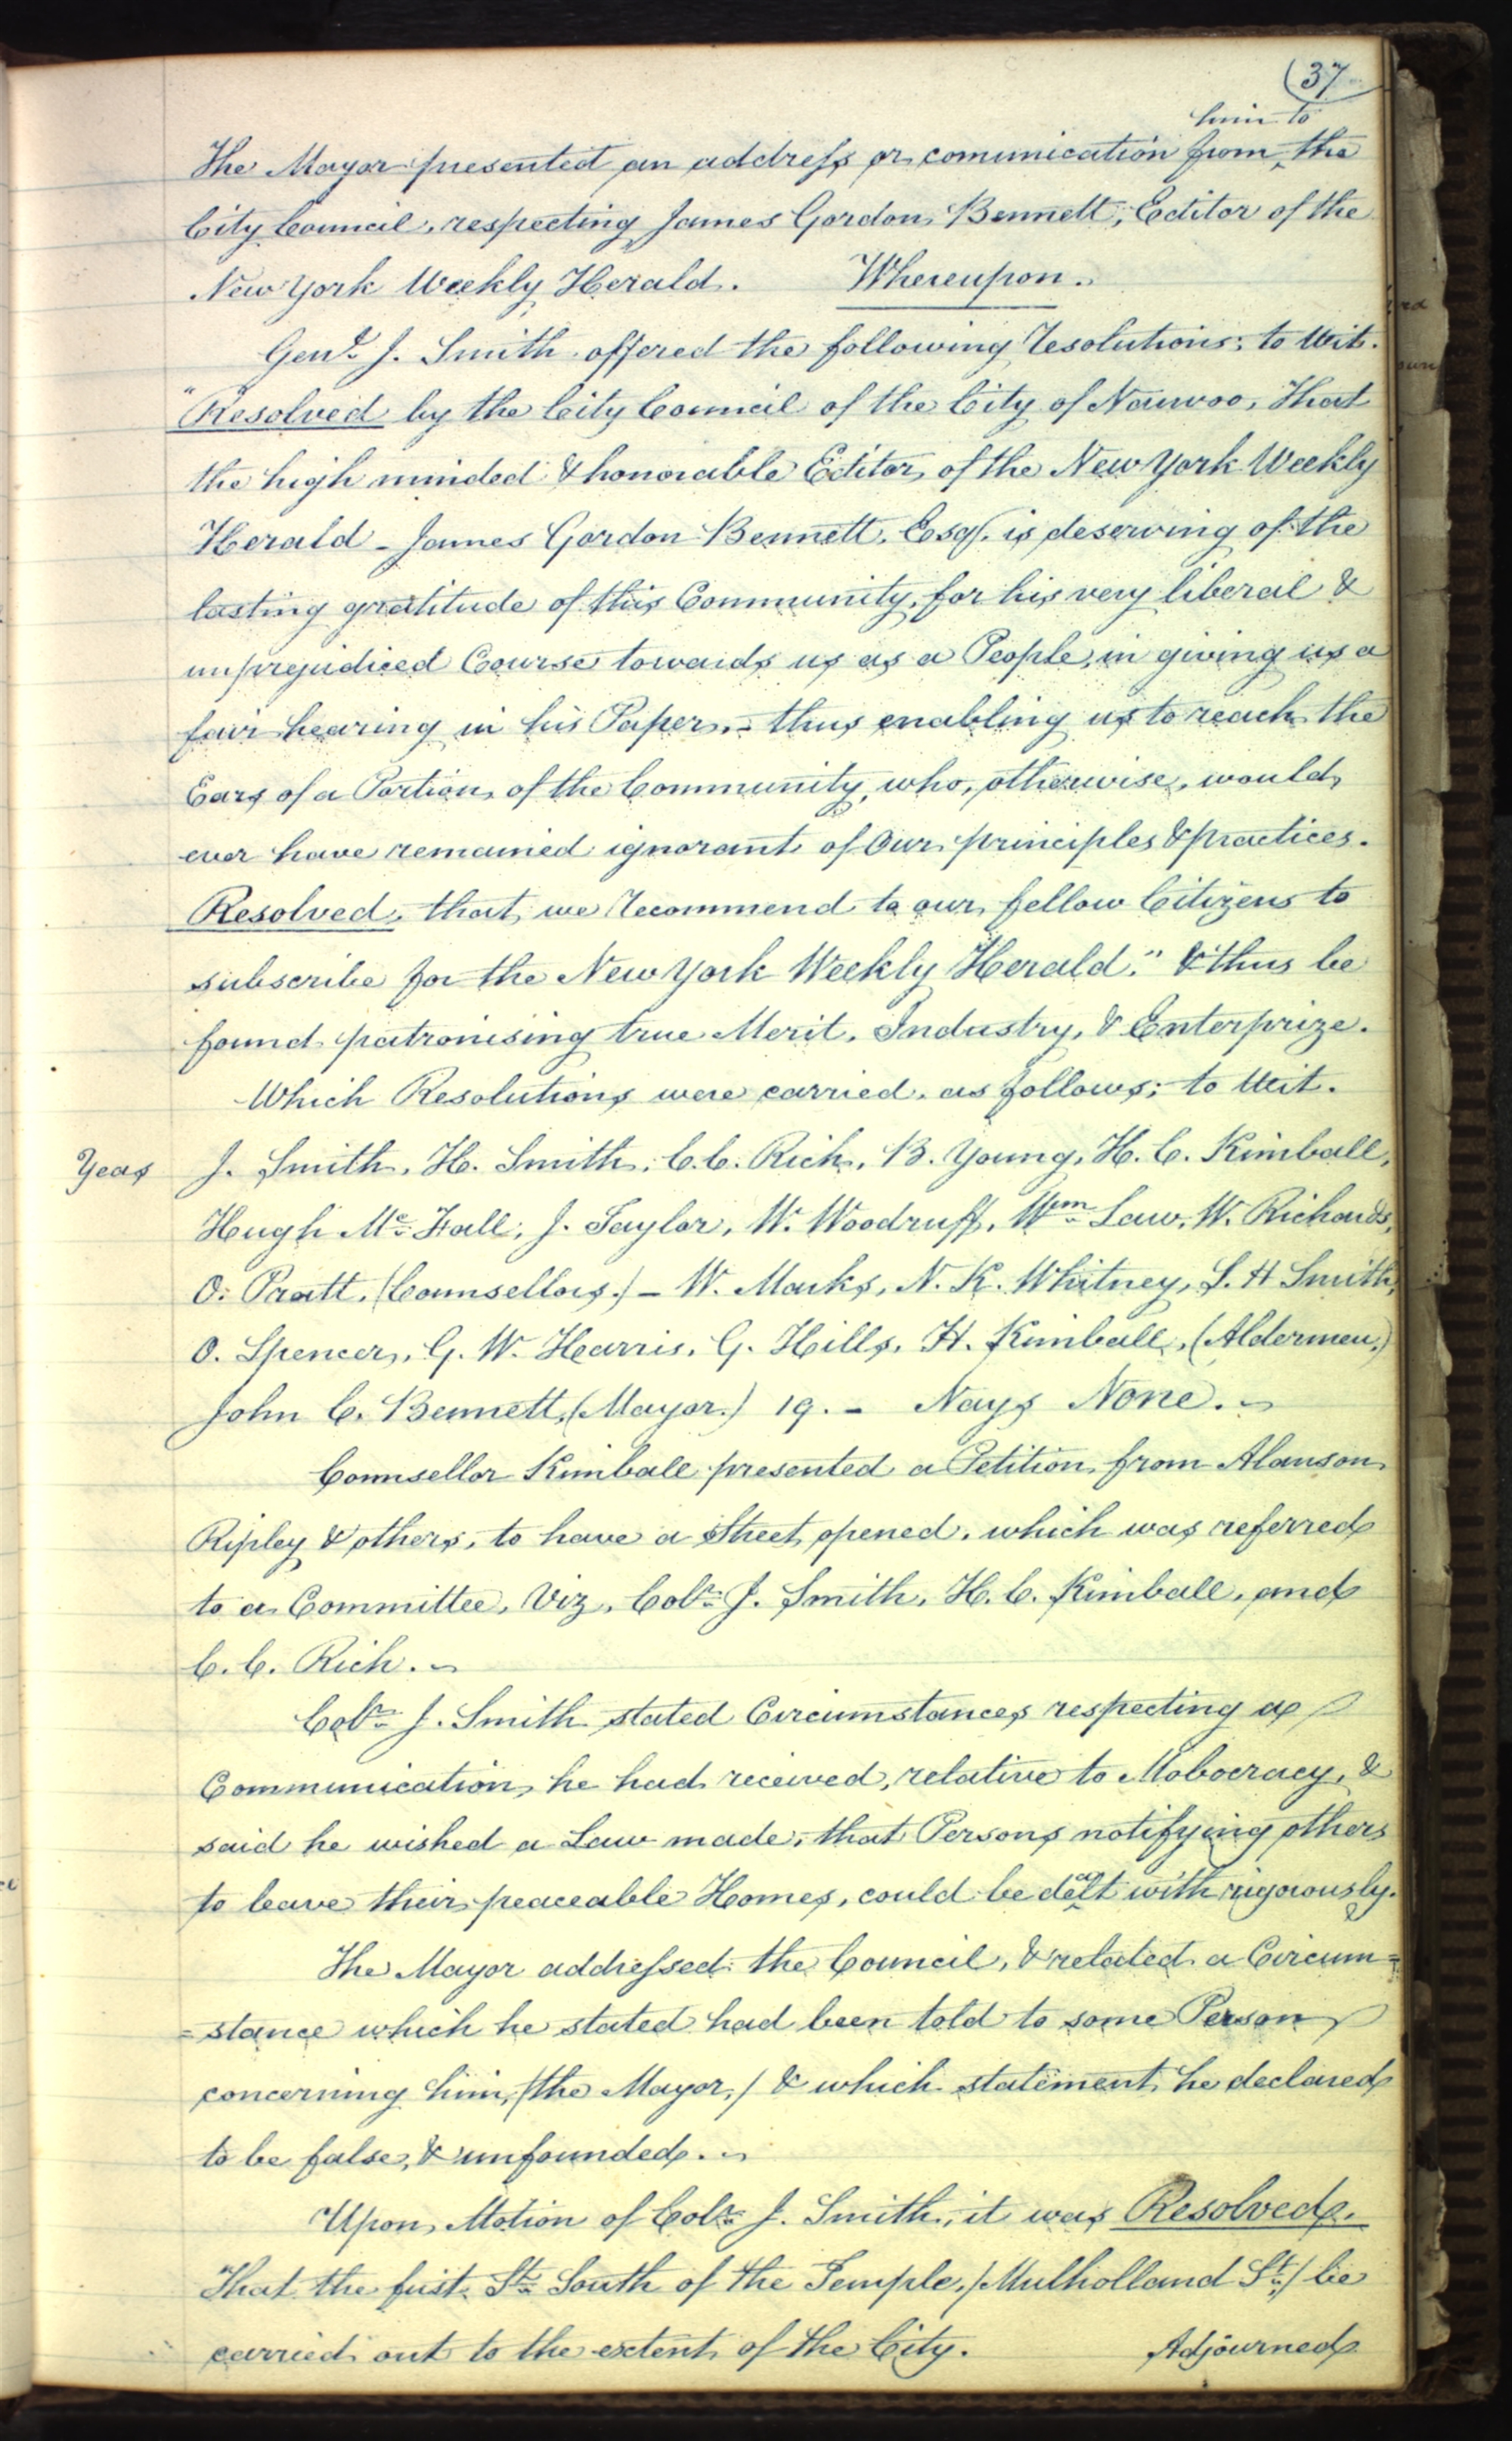 (37
him to
The Mayor presented an address or comunication from ^ the
City Council, respecting James Gordon Bennett, Editor of the
New York Weekly Herald. Whereupon.
Genl. J. Smith offered the following Resolutions; to Wit.
"Resolved" by the City Council of the City of Nauvoo, That
the high minded & honorable Editor of the New York Weekly
Herald - James Gordon Bennett, Esq. is deserving of the
lasting gratitude of this Community, for his very liberal &
unprejudiced Course towards us as a People, in giving us a
fair hearing in his Paper, - thus enabling us to reach the
Ears of a Portion of the Community, who, otherwise, would
ever have remained ignorant of Our principles & practices.
Resolved, that we Recommend to our fellow Citizens to
subscribe for the New York Weekly Herald." & thus be
found patronising true Merit, Industry, & Enterprize.
Which Resolutions were carried, as follows; to Wit.
Yeas J. Smith, H. Smith, C. C. Rich, B. Young, H. C. Kimball,
Hugh Mc. Fall, J. Taylor, W. Woodruff, Wm. Law, W. Richards,
O. Pratt, (Counsellors.) - W. Marks, N. K. Whitney, S. H Smith,
O. Spencer, G. W. Harris, G. Hills, H. Kimball, (Aldermen,)
John C. Bennett, (Mayor.) 19. - Nays None. ~
Counsellor Kimball presented a Petition from Alanson
Ripley & others, to have a Street opened, which was referred
to a Committee, Viz, Colr. J. Smith, H. C. Kimball, and
C. C. Rich. ~
Colr. J. Smith stated Circumstances respecting a
Communication he had received, relative to Mobocracy, &
said he wished a Law made, that Persons notifying others
to leave their peaceable Homes, could be dealt with rigorously.
The Mayor addressed the Council, & related a Circum=
=stance which he stated had been told to some Person
concerning him, (the Mayor,) & which statement he declared
to be false, & unfounded. ~
Upon Motion of Colr. J. Smith, it was Resolved,
That the first St. South of the Temple, (Mulholland St.) be
carried out to the extent of the City. Adjourned